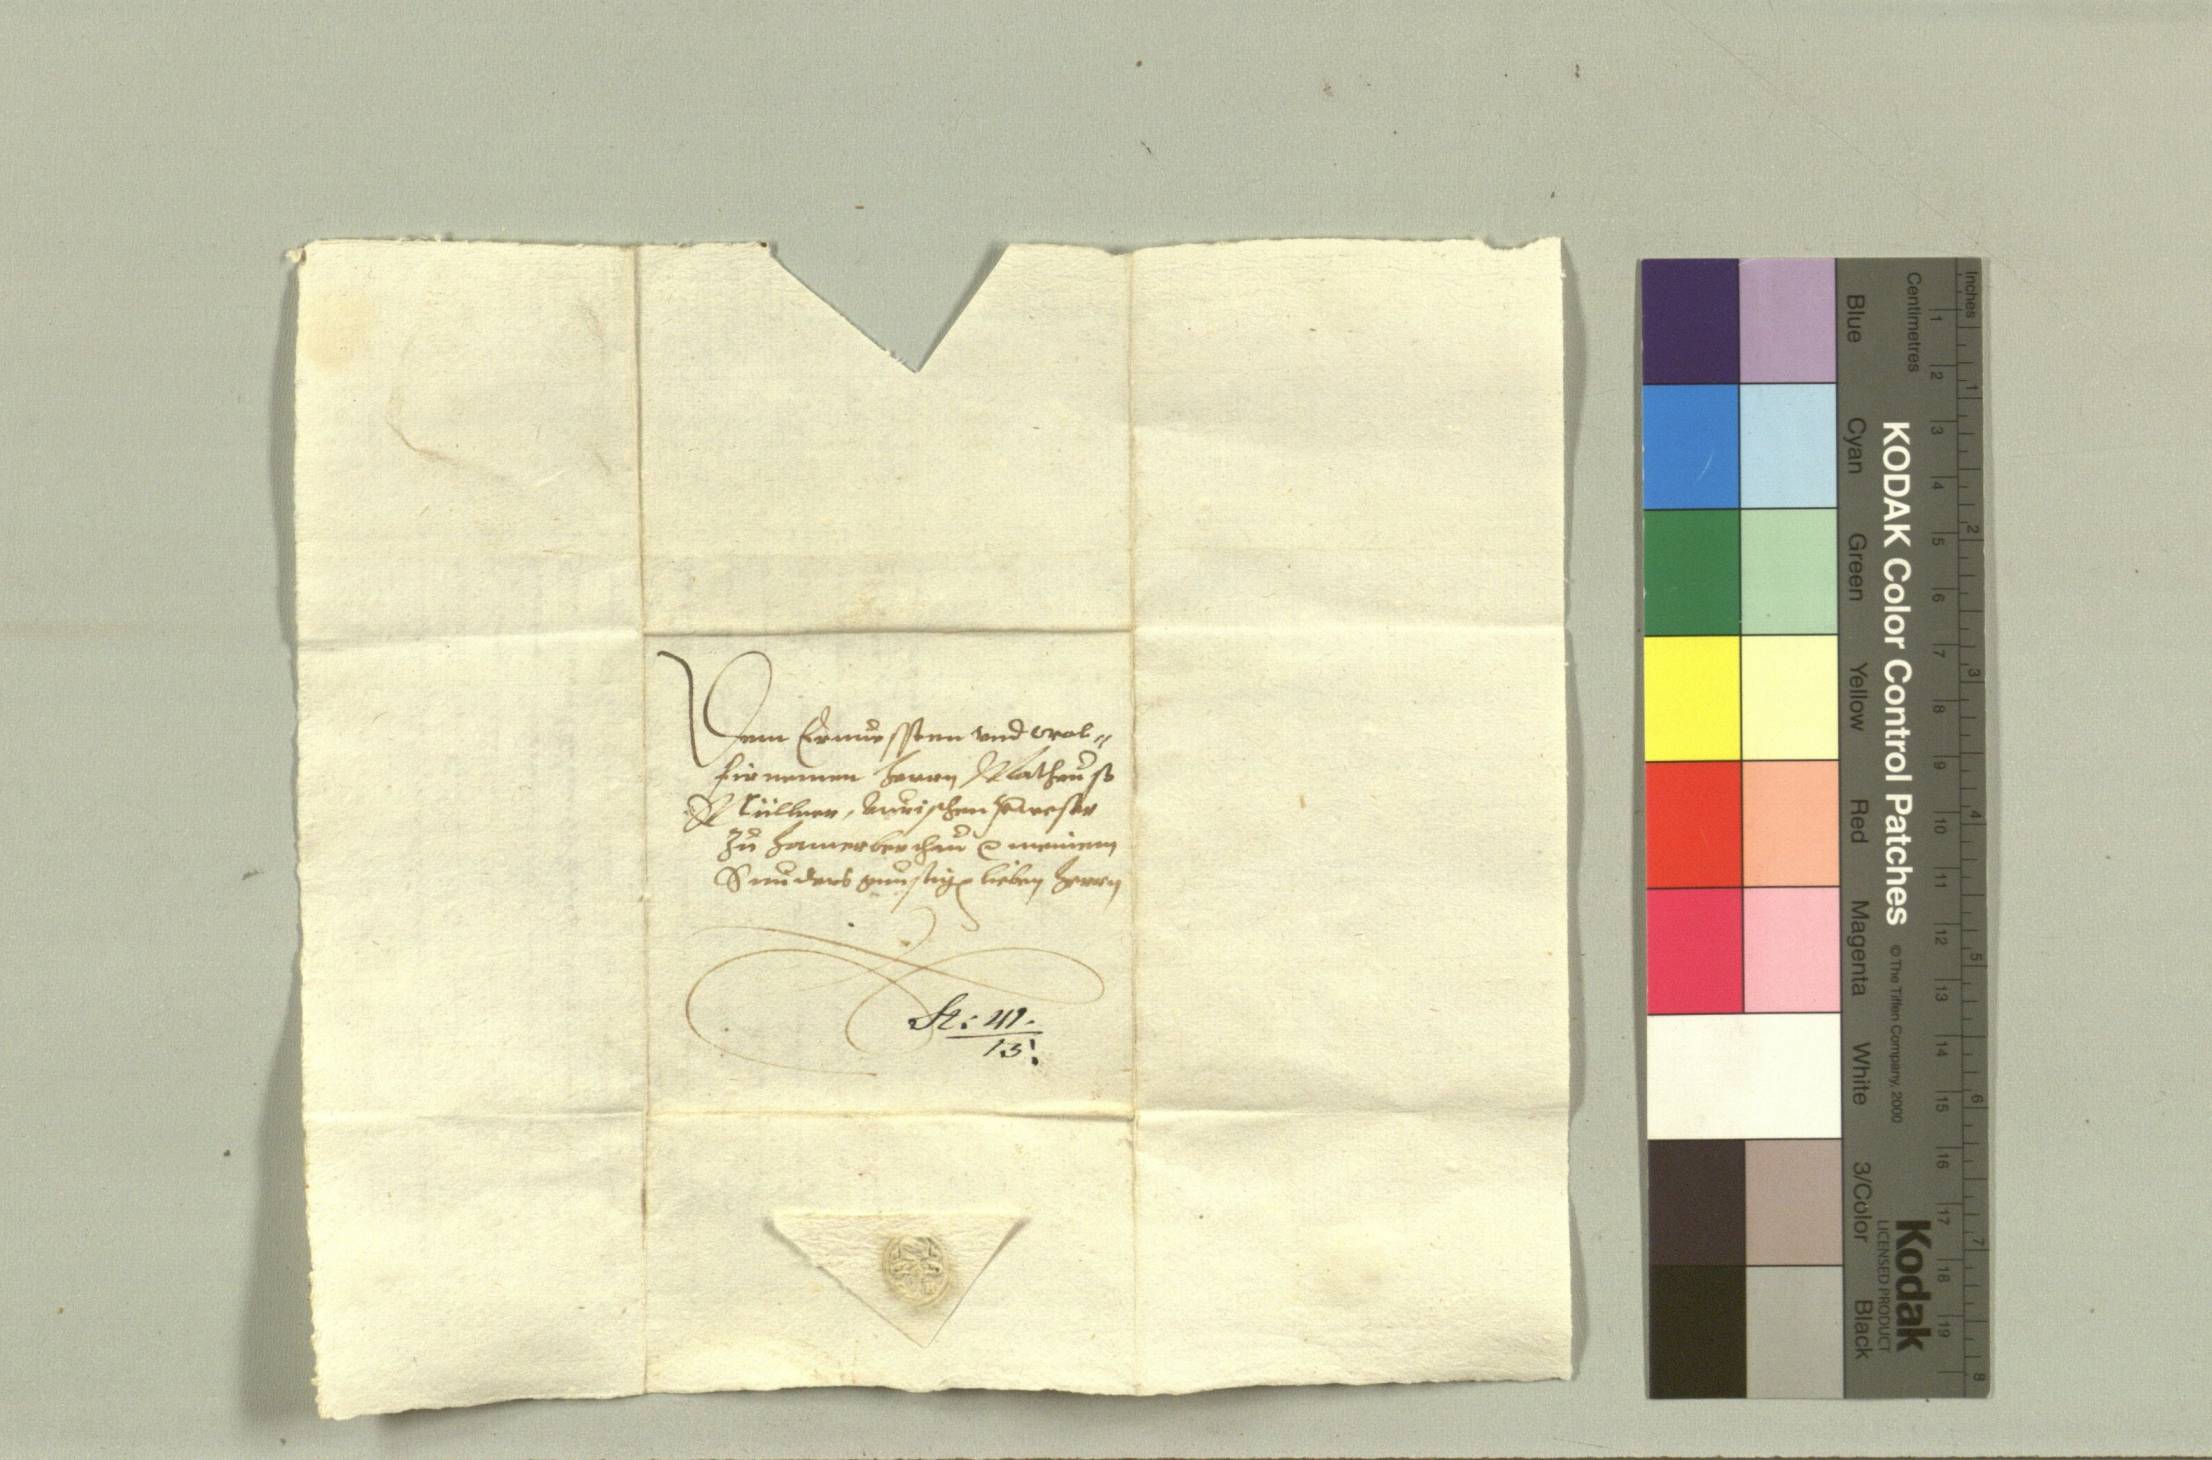 Dem Ernvessten und wol-
fürnemen Herrn Matheuß
Müllner,
Zu meinem
günstigen lieben Herrn
St: 41.
13!
KODAK Color Control Patches
© The Tiffen Company, 2000
Kodak
LICENSED PRODUCT
Inches
Centimetres
1 2 3 4 5 6 7 8
1 2 3 4 5 6 7 8 9 10 11 12 13 14 15 16 17 18 19
Blue
Cyan
Green
Yellow
Red
Magenta
White
3/Color
Black